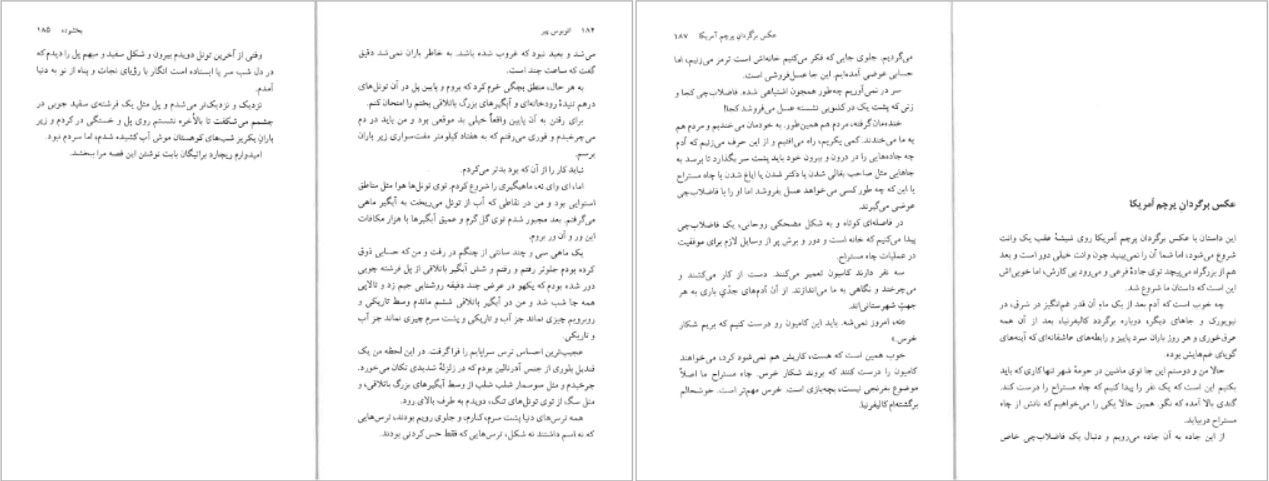 ۱۸۴ اتوبوس پیر
می‌شد و بعید نبود که غروب شده باشد. به خاطر باران نمی‌شد دقیق
گفت که ساعت چند است.
به هر حال، منطق بچگی خرم کرد که بروم و پایین پل در آن تونل‌های
درهم تنیدهٔ رودخانه‌ای و آبگیرهای بزرگ باتلاقی بختم را امتحان کنم.
برای رفتن به آن پایین واقعاً خیلی بد موقعی بود و من باید در دم
می‌چرخیدم و فوری می‌رفتم که به هفتاد کیلومتر مفت‌سواری زیر باران
برسم.
نباید کار را از آن که بود بدتر می‌کردم.
اما، ای وای نه، ماهیگیری را شروع کردم. توی تونل‌ها هوا مثل مناطق
استوایی بود و من در نقاطی که آب از تونل می‌ریخت به آبگیر ماهی
می‌گرفتم. بعد مجبور شدم توی گل گرم و عمیق آبگیرها با هزار مکافات
این ور و آن ور بروم.
یک ماهی سی و چند سانتی از چنگم در رفت و من که حسابی ذوق
کرده بودم جلوتر رفتم و رفتم و شش آبگیر باتلاقی از پل فرشته چوبی
دور شده بودم که یکهو در عرض چند دقیقه روشنایی جیم زد و تالاپی
همه جا شب شد و من در آبگیر باتلاقی ششم ماندم وسط تاریکی و
روبرویم چیزی نماند جز آب و تاریکی و پشت سرم چیزی نماند جز آب
و تاریکی.
عجیب‌ترین احساس ترس سراپایم را فرا گرفت. در این لحظه من یک
قندیل بلوری از جنس آدرنالین بودم که در زلزلهٔ شدیدی تکان می‌خورد.
چرخیدم و مثل سوسمار شلپ شلپ از وسط آبگیرهای بزرگ باتلاقی، و
مثل سگ از توی تونل‌های تنگ، دویدم به طرف بالای رود.
همه ترس‌های دنیا پشت سرم، کنارم، و جلوی رویم بودند، ترس‌هایی
که نه اسم داشتند نه شکل، ترس‌هایی که فقط حس کردنی بودند.
بخشوده ۱۸۵
وقتی از آخرین تونل دویدم بیرون و شکل سفید و مبهم پل را دیدم که
در دل شب سر پا ایستاده است انگار با رؤیای نجات و پناه از نو به دنیا
آمدم.
نزدیک و نزدیک‌تر می‌شدم و پل مثل یک فرشته‌ی سفید چوبی در
چشمم می‌شکفت تا بالأخره نشستم روی پل و خستگی در کردم و زیر
باران یکریز شب‌های کوهستان موش آب کشیده شدم، اما سردم نبود.
امیدوارم ریچارد براتیگان بابت نوشتن این قصه مرا ببخشد.
عکس برگردانِ پرچم آمریکا
این داستان با عکس برگردان پرچم آمریکا روی شیشهٔ عقب یک وانت
شروع می‌شود، اما شما آن را نمی‌بینید چون وانت خیلی دور است و بعد
هم از بزرگراه می‌پیچد توی جادهٔ فرعی و می‌رود پی کارش، اما خوبی‌اش
این است که داستان ما شروع شد.
چه خوب است که آدم بعد از یک ماهِ آن قدر غم‌انگیز در شرق، در
نیویورک و جاهای دیگر، دوباره برگردد کالیفرنیا، بعد از آن همه
عرق‌خوری و هر روز باران سرد پاییز و رابطه‌های عاشقانه‌ای که آینه‌های
گویای غم‌هایش بود.
حالا من و دوستم این جا توی ماشین در حومهٔ شهر تنها کاری که باید
بکنیم این است که یک نفر را پیدا کنیم که چاه مستراح را درست کند.
گندی بالا آمده که نگو. همین حالا یکی را می‌خواهیم که نانش از چاه
مستراح دربیاید.
از این جاده به آن جاده می‌رویم و دنبال یک فاضلاب‌چی خاص
عکس برگردانِ پرچم آمریکا ۱۸۷
می‌گردیم. جلوی جایی که فکر می‌کنیم خانه‌اش است ترمز می‌زنیم، اما
حسابی عوضی آمده‌ایم. این جا عسل‌فروشی است.
سر در نمی‌آوریم چه‌طور همچون اشتباهی شده. فاضلاب‌چی کجا و
زنی که پشت یک در کتلتویی نشسته عسل می‌فروشد کجا!
خنده‌مان گرفته، مردم هم همین‌طور. به خودمان می‌خندیم و مردم هم
به ما می‌خندند. کمی یکریم، راه می‌افتیم و از این حرف می‌زنیم که آدم
چه جاده‌هایی را در درون و بیرون خود باید پشت سر بگذارد تا برسد به
جاهایی مثل صاحب بقالی شدن یا دکتر شدن یا ایاغ شدن با چاه مستراح
یا این که چه طور کسی می‌خواهد عسل بفروشد اما او را با فاضلاب‌چی
عوضی می‌گیرند.
در فاصله‌ای کوتاه و به شکل مضحکی روحانی، یک فاضلاب‌چی
پیدا می‌کنیم که خانه است و دور و برش پر از وسایل لازم برای موفقیت
در عملیات چاه مستراح.
سه نفر دارند کامیون تعمیر می‌کنند. دست از کار می‌کشند و
می‌چرخند و نگاهی به ما می‌اندازند. از آن آدم‌های جدّیِ باری به هر
جهتِ شهرستانی‌اند.
«نه، امروز نمی‌شه. باید این کامیون رو درست کنیم که بریم شکار
خرس.»
خوب همین است که هست، کاریش هم نمی‌شود کرد، می‌خواهند
کامیون را درست کنند که بروند شکار خرس. چاه مستراح ما اصلاً
موضوع بغرنجی نیست، بچه‌بازی است. خرس مهم‌تر است. خوشحالم
برگشته‌ام کالیفرنیا.